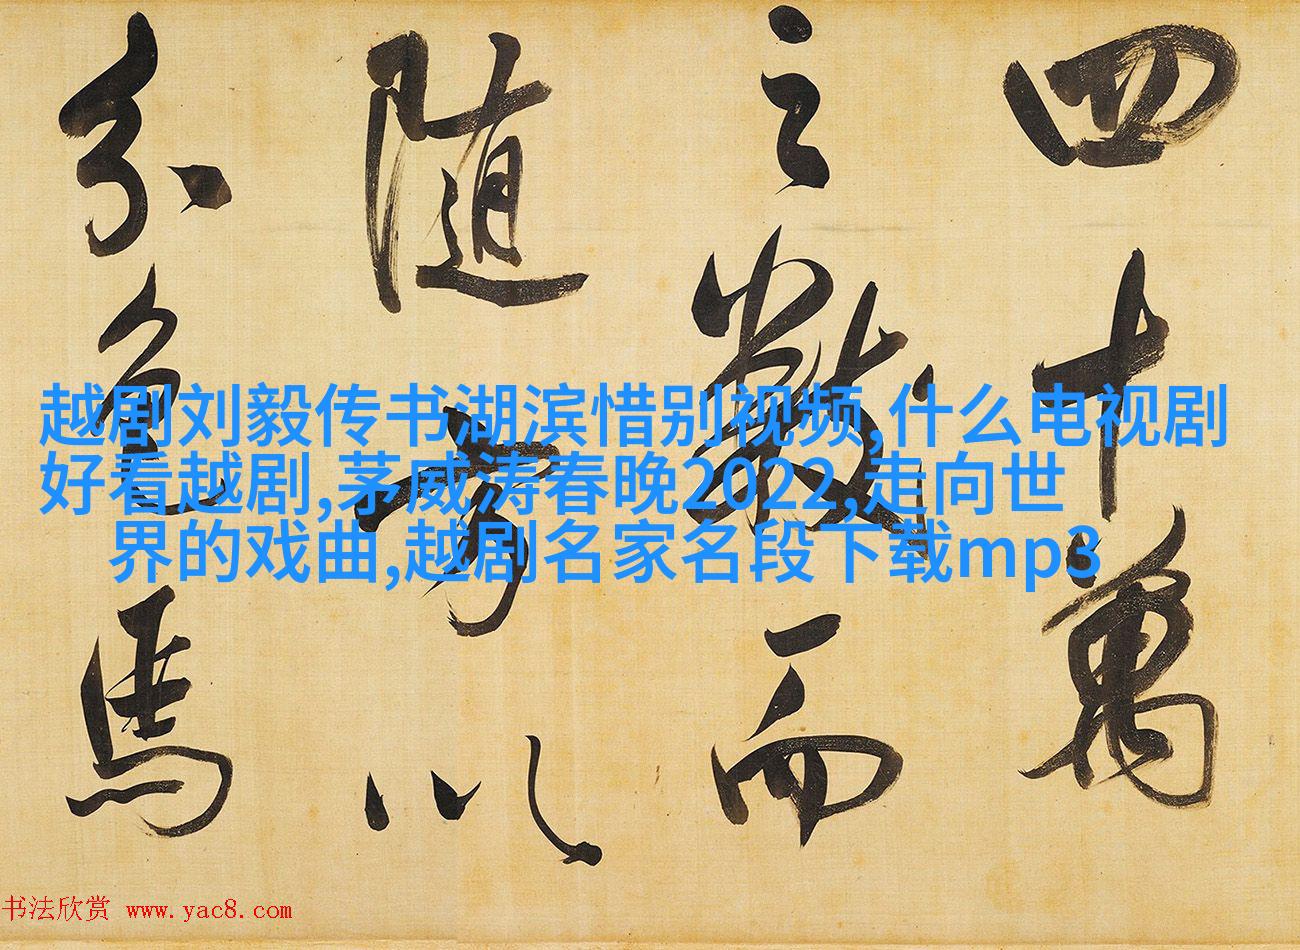 四十萬
之數而
隨方以
分色馬
越剧刘毅传书湖滨惜别视频,什么电视剧
好看越剧,茅威涛春晚2022,走向世
界的戏曲,越剧名家名段下载mp3
书法欣赏 www.yac8.com